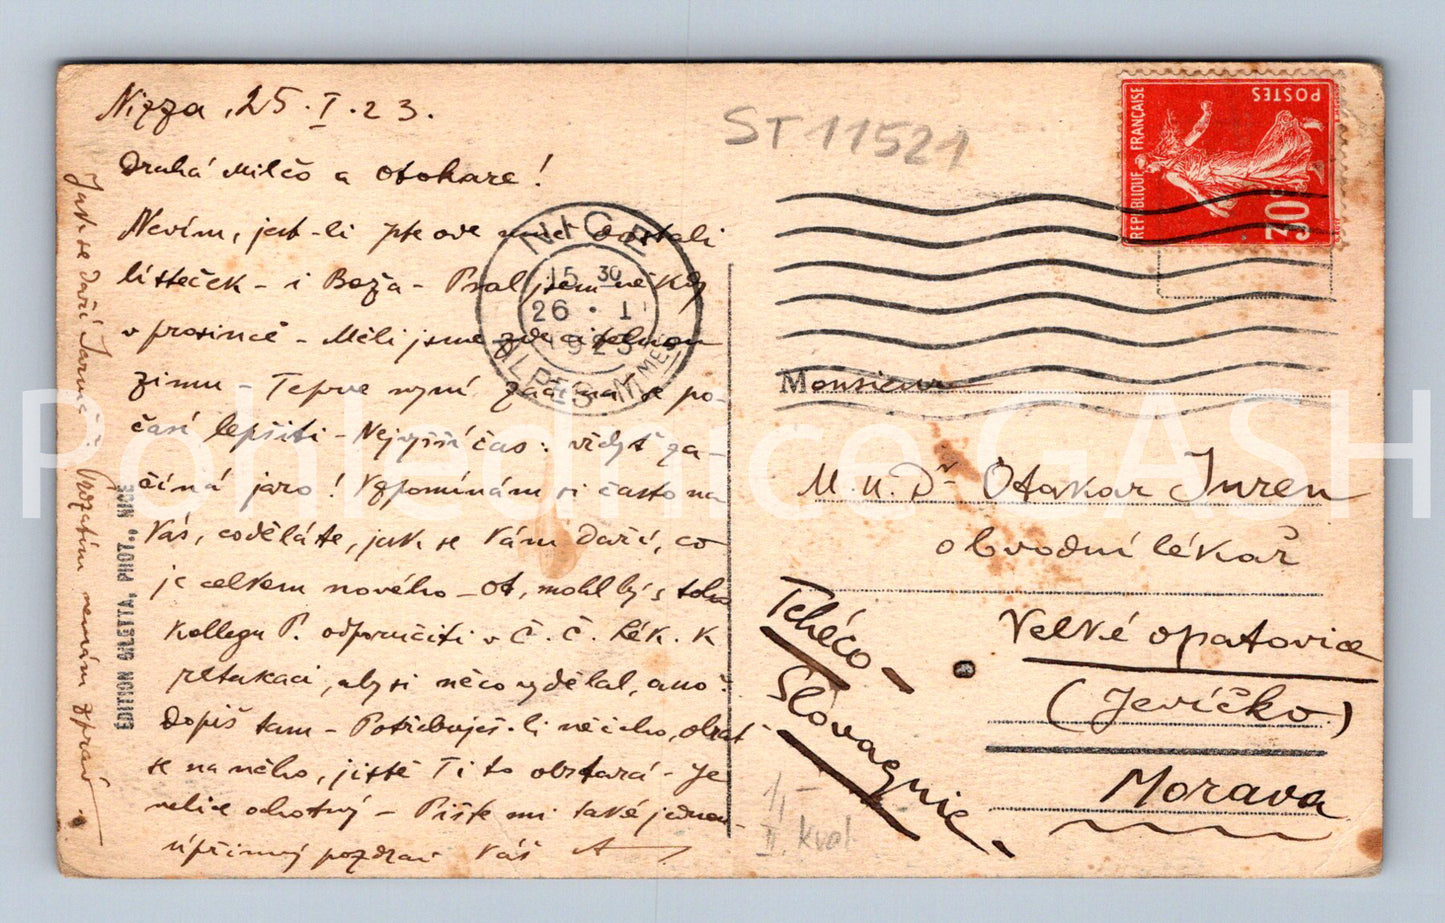 Nizza, 25. I. 23.
Drahá Milčo a Otokare!
Nevím, jest-li jste ode mne dostali
lísteček - i Boža - Psal jsem někdy
v prosinci - Měli jsme zde citelnou
zimu - Teprve nyní začíná se po-
časí lepšiti - Nejvyšší čas: vždyť za-
číná jaro! Vzpomínám si často na
Vás, co děláte, jak se Vám daří, co
je celkem nového - Ot, mohl bys toho
kollegu P. odporučiti v Č. Č. lék. k
, aby si něco vydělal, ano?
Dopiš tam - Potřebuješ-li něčeho, obrať
se na něho, jistě Ti to obstará - Je
velice ochotný - Pište mi také jednou
Upřimný pozdrav Váš A
Jak se daří Jarmč? Prozatím nemám zpráv.
ÉDITION GILETTA, PHOT., NICE
ST 11521
NICE
15 30
26 · I
1923
ALPES MMES
REPUBLIQUE FRANÇAISE
POSTES
30
Monsieur
M.U.Dr Otakar Juren
obvodní lékař
Velké Opatovice
(Jevíčko)
Morava
Tchéco-
Slovaquie.
1/-
II. kval.
Pohlednice GASH